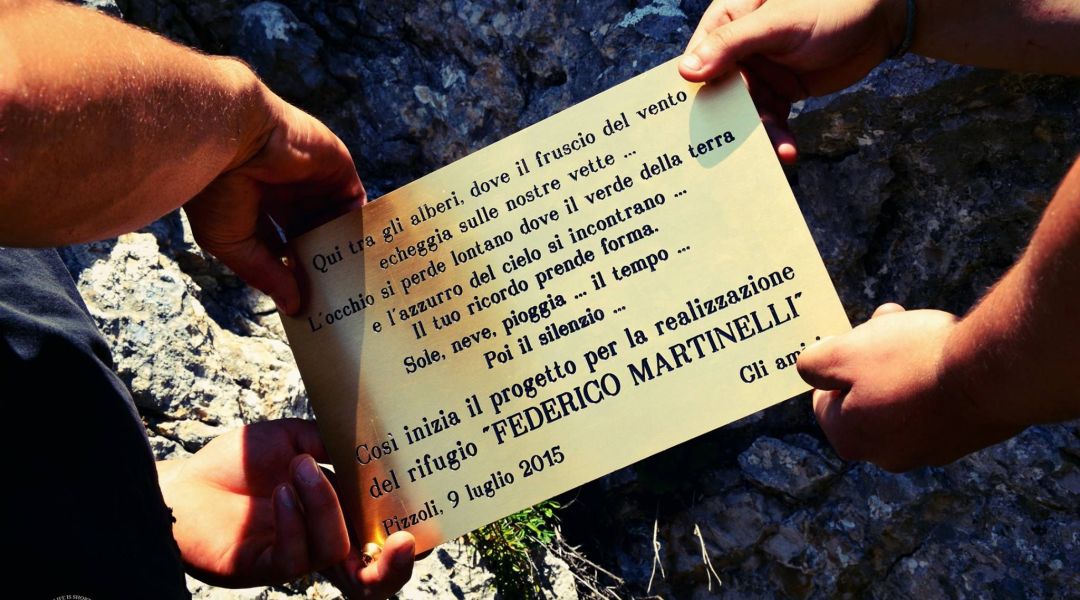 Qui tra gli alberi, dove il fruscio del vento
echeggia sulle nostre vette ...
L'occhio si perde lontano dove il verde della terra
e l'azzurro del cielo si incontrano ...
Il tuo ricordo prende forma.
Sole, neve, pioggia ... il tempo ...
Poi il silenzio ...
Così inizia il progetto per la realizzazione
del rifugio "FEDERICO MARTINELLI"
Gli
Pizzoli, 9 luglio 2015
LIFE IS SHORT